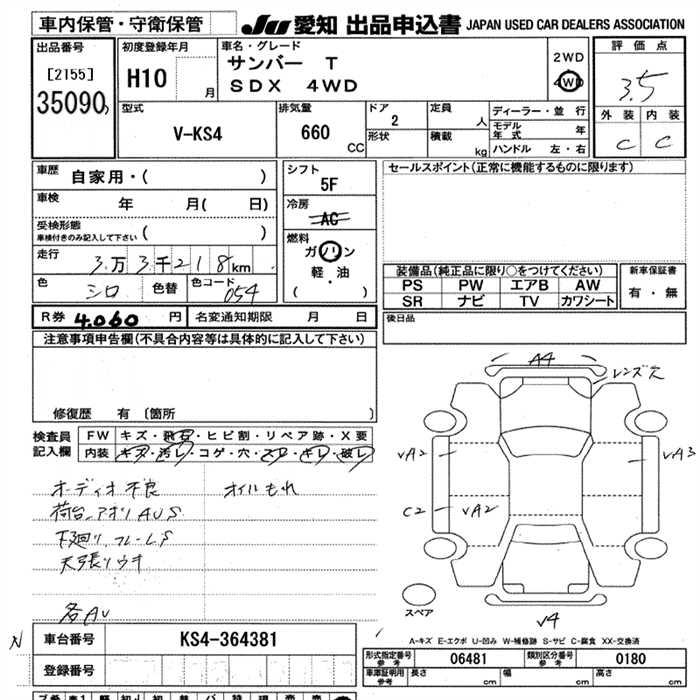 車内保管・守衛保管
JU 愛知 出品申込書 JAPAN USED CAR DEALERS ASSOCIATION
出品番号
[2155]
35090
初度登録年月
H10 月
車名・グレード
サンバー T
SDX 4WD
2WD
4WD
評価点
3.5
外装 内装
C C
型式
V-KS4
排気量
660 CC
ドア
2
形状
定員
人
積載
kg
ディーラー・並行
モデル年式 年
ハンドル 左・右
車歴
自家用・( )
車検
年 月( 日)
受検形態
車検付きのみ記入して下さい ( )
走行
3万3千218km
色
シロ
色替
色コード
054
シフト
5F
冷房
AC
燃料
ガソリン
軽・油
( )
セールスポイント(正常に機能するものに限ります)
装備品(純正品に限り○をつけてください)
PS PW エアB AW
SR ナビ TV カワシート
新車保証書
有・無
R券 4.060 円 名変通知期限 月 日
後日品
注意事項申告欄(不具合内容等は具体的に記入して下さい)
修復歴 有 〔箇所 〕
検査員記入欄
FW キズ・飛石・ヒビ割・リペア跡・X要
内装 キズ・汚レ・コゲ・穴・スレ・キレ・破レ
オーディオ不良
オイルもれ
荷台_アオリAUS
下廻り、フレームS
天張リウキ
各AU
A4
レンズ欠
vA2
vA3
C2
vA2
スペア
v4
A-キズ E-エクボ U-凹み W-補修跡 S-サビ C-腐食 XX-交換済
N
車台番号 KS4-364381
登録番号
形式指定番号
参考
06481
類別区分番号
参考
0180
車庫証明用
参考
長さ cm 幅 cm 高さ cm